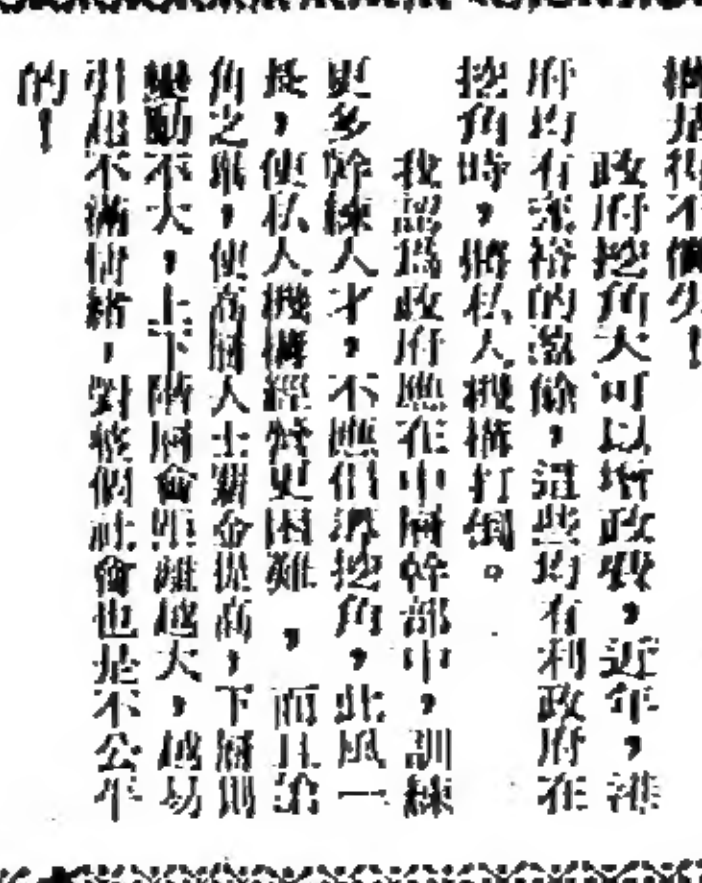 構是得不償失！
政府挖角大可以增政費，近年，港
府均有充裕的盈餘，這些均有利政府在
挖角時，將私人機構打倒。
我認為政府應在中層幹部中，訓練
更多幹練人才，不應倡導挖角，此風一
長，使私人機構經營更困難，而且搶
角之風，使高層人士薪金提高，下層則
變動不大，上下階層會距離越大，越易
引起不滿情緒，對整個社會也是不公平
的！